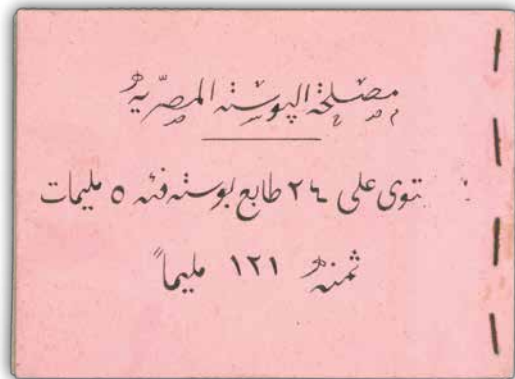 مصلحة البوستة المصرية
توى على ٢٤ طابع بوسته فئه ٥ مليمات
ثمنه ١٢١ مليماً